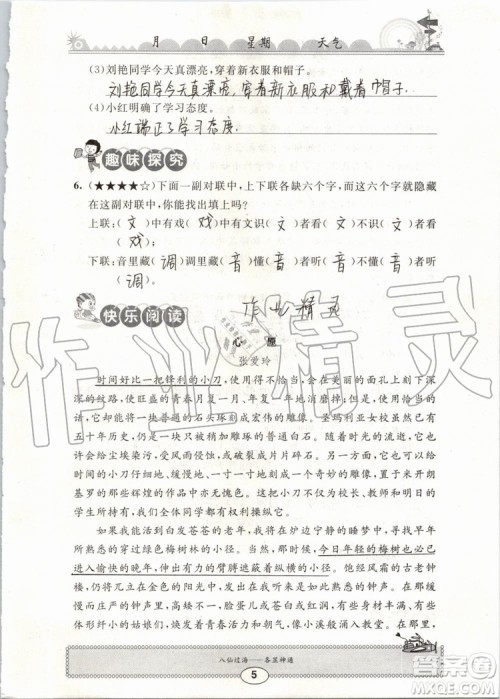 月 日 星期 天气
(3)刘艳同学今天真漂亮,穿着新衣服和帽子。
刘艳同学今天真漂亮,穿着新衣服和戴着帽子.
(4)小红明确了学习态度。
小红端正了学习态度.
趣味探究
6.(★★★★☆)下面一副对联中,上下联各缺六个字,而这六个字就隐藏
在这副对联中,你能找出来吗?
上联:(文)中有戏(戏)中有文识(文)者看(文)不识(文)者看
(戏);
下联:音里藏(调)调里藏(音)懂(音)者听(音)不懂(音)者听
(调)。
作业精灵
快乐阅读
作业精灵
心 愿
张爱玲
时间好比一把锋利的小刀,用得不恰当,会在美丽的面孔上刻下深
深的纹路,使旺盛的青春月复一月、年复一年地消磨掉;但是,使用恰当
的话,它却能将一块普通的石头琢刻成宏伟的雕像。圣玛利亚女校虽然已有
五十年历史,仍是一块只会稍加雕琢的普通白石。随着时光的流逝,它也
许会给尘埃染污,受风雨侵蚀,或破裂成片片碎石。另一方面,它也可以给
时间的小刀仔细地、缓慢地、一寸一寸地刻成一个奇妙的雕像,置于米开朗
基罗的那些辉煌的作品中亦无愧色。这把小刀不仅为校长、教师和明日的
学生所持有,我们全体同学都有权利操纵它。
如果我能活到白发苍苍的老年,我将在炉边宁静的睡梦中,寻找早年
所熟悉的穿过绿色梅树林的小径。当然,今日年轻的梅树也必已
进入愉快的晚年,伸出有力的臂膊遮蔽着纵横的小径。饱经风霜的古老
钟楼,仍应兀立在金色的阳光中,发出在我听来是如此熟悉的钟声。在
缓慢而庄严的钟声里,高矮不一、脸蛋儿或苍白或红润、有些身材丰满、有些
体形纤小的姑娘们,焕发着青春活力和朝气,像小溪般涌入教堂。在那
八仙过海——各显神通
5
答案圈